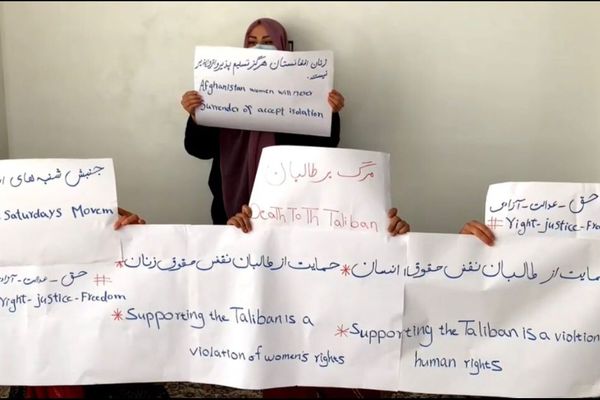 زنان افغانستان هرگز تسلیم پذیر و انزوا پذیر
نیستند.
Afghanistan women will never
Surrender of accept isolation
جنبش شنبه های
Saturdays Movem
مرگ بر طالبان
Death To Th Taliban
حق - عدالت - آزادی
#Yight-justice-Freedom
حق - عدالت - آزادی #
Yight-justice-Freedom
*حمایت از طالبان نقض حقوق زنان
*Supporting the Taliban is a
violation of women's rights
*حمایت از طالبان نقض حقوق انسان
*Supporting the Taliban is a violtion
human rights